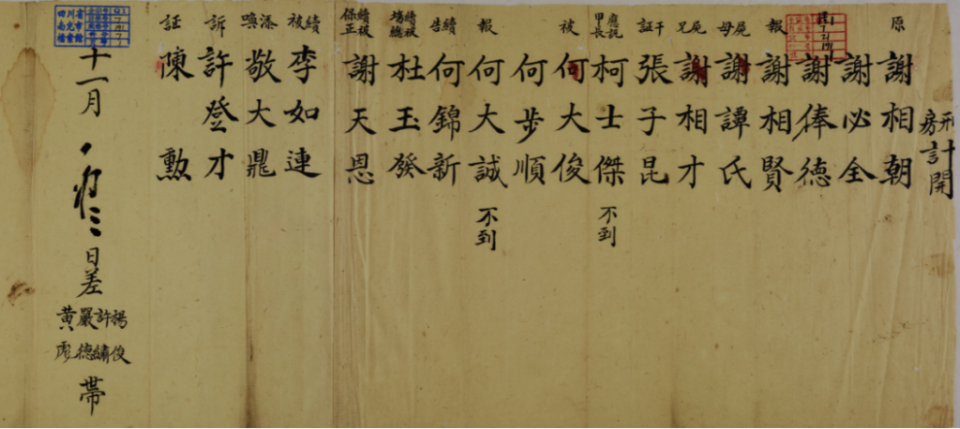 刑房計開
原 謝相朝
謝必全
謝俸德
報 謝相賢
屍母 謝譚氏
屍兄 謝相才
干証 張子昆
應訊甲長 柯士傑 不到
被 何大俊
何步順
報 何大誠 不到
續告 何錦新
續被場總 杜玉發
續被保正 謝天恩
續被 李如連
添喚 敬大鼎
訴 許登才
証 陳勲
十一月
日差
楊俊
許
嚴德
黃
帶